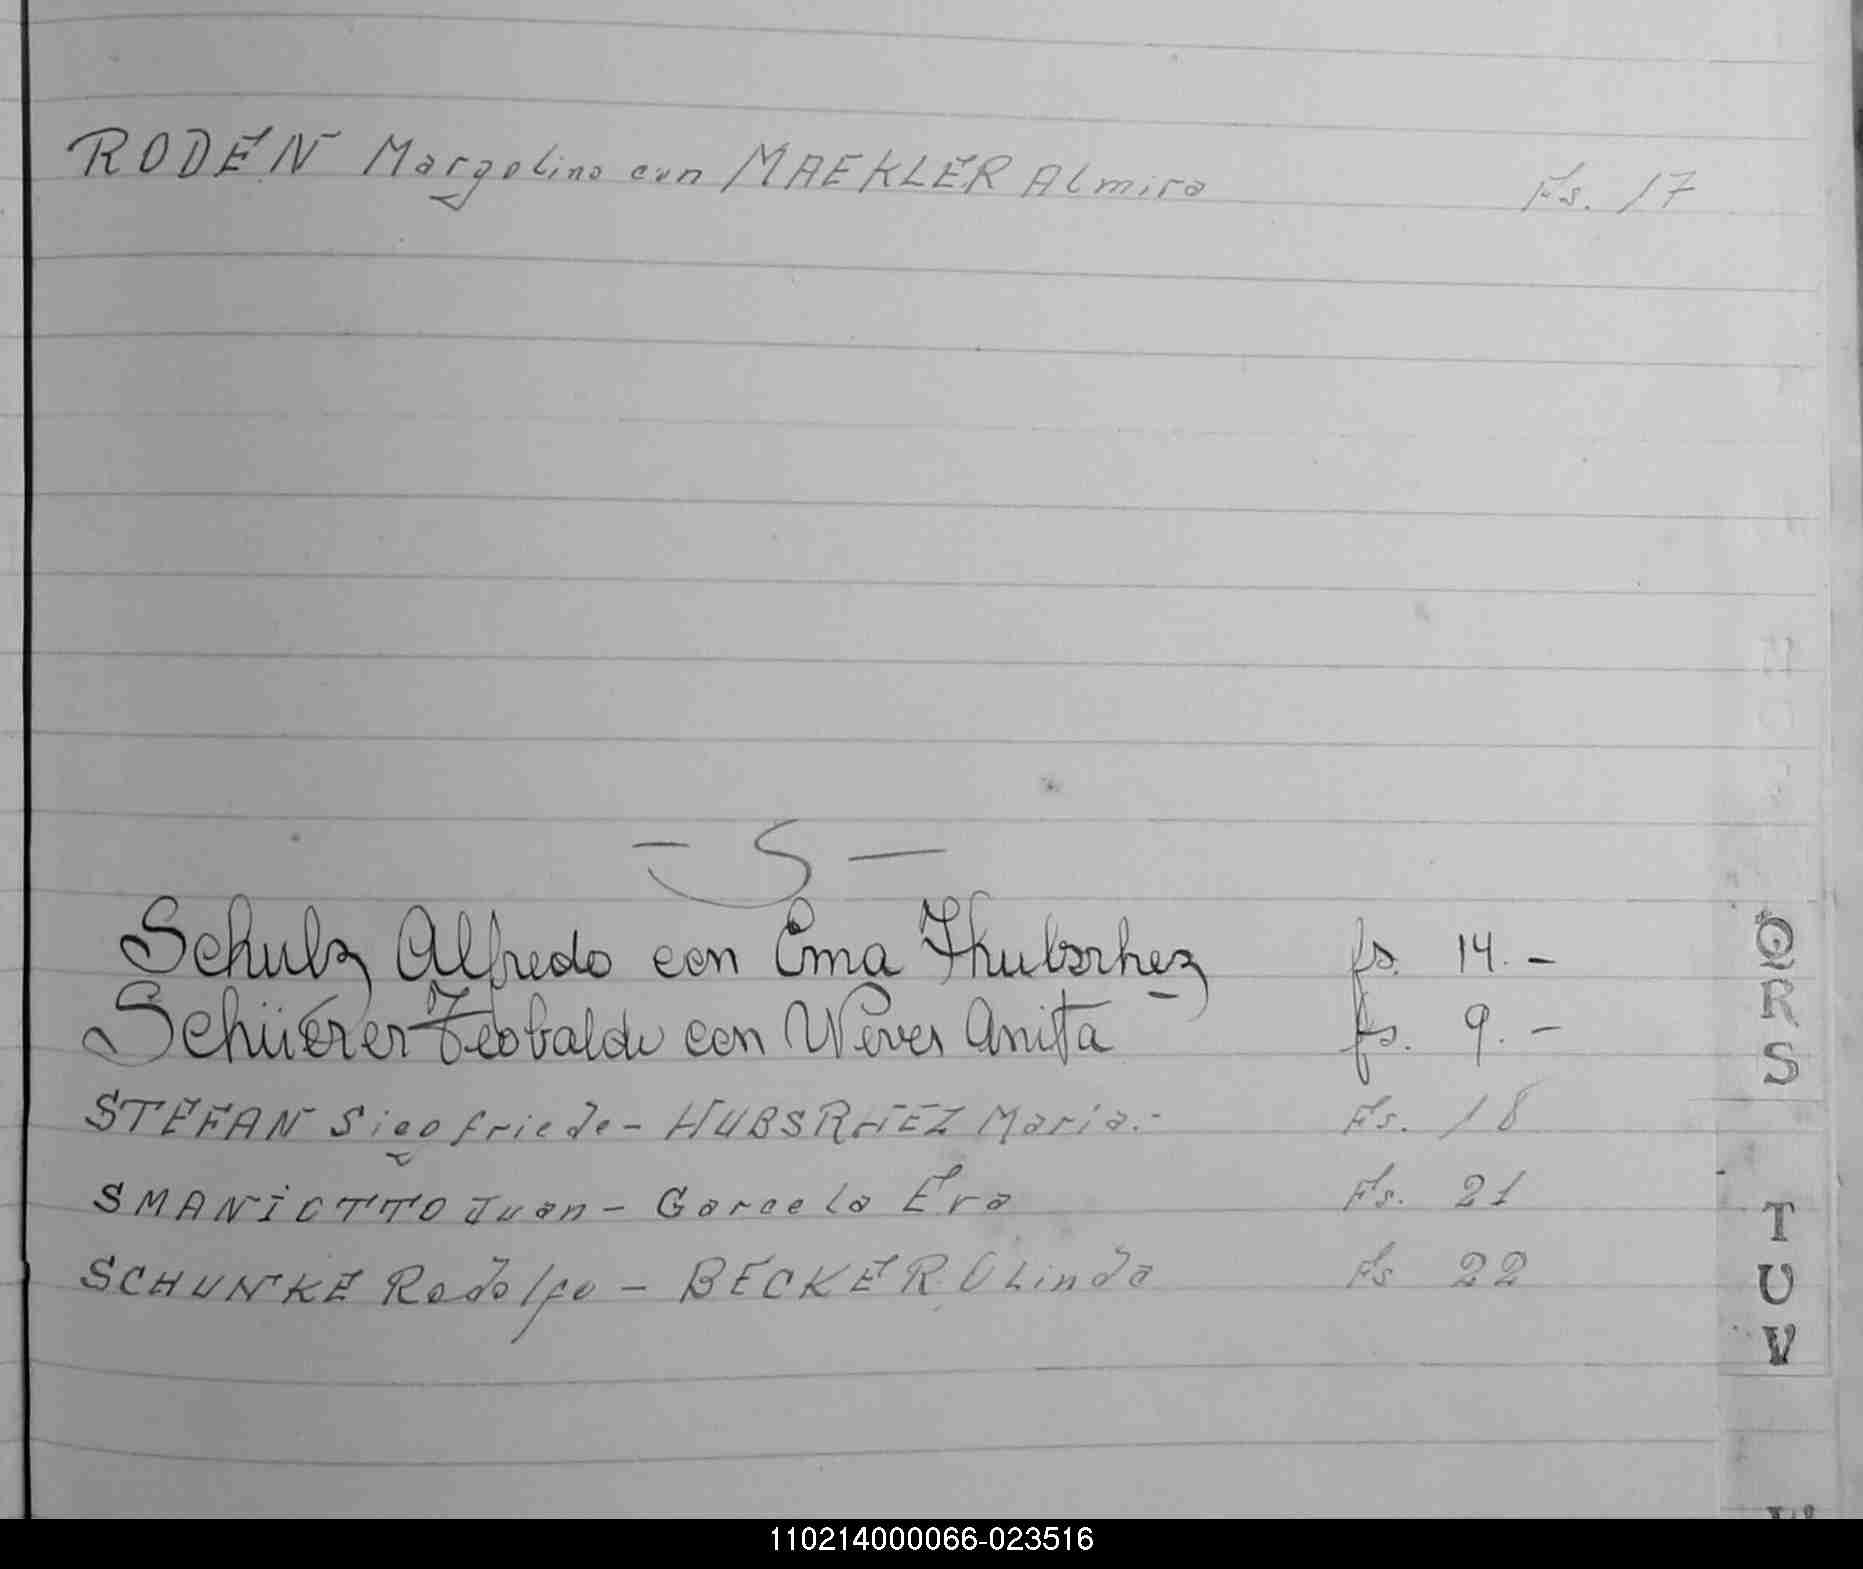 RODEN Margolino con MAEKLER Almira Fs. 17
- S -
Schulz Alfredo con Ema Thubsrhez fs. 14.-
Schüerer Teobaldo con Wever Anita fs. 9.-
STEFAN Sigofriedo - HUBSRHEZ Maria.- Fs. 18
SMANIOTTO Juan - Garcela Eva Fs. 21
SCHUNKE Rodolfo - BECKER Olinda Fs 22
Q
R
S
T
U
V
110214000066-023516